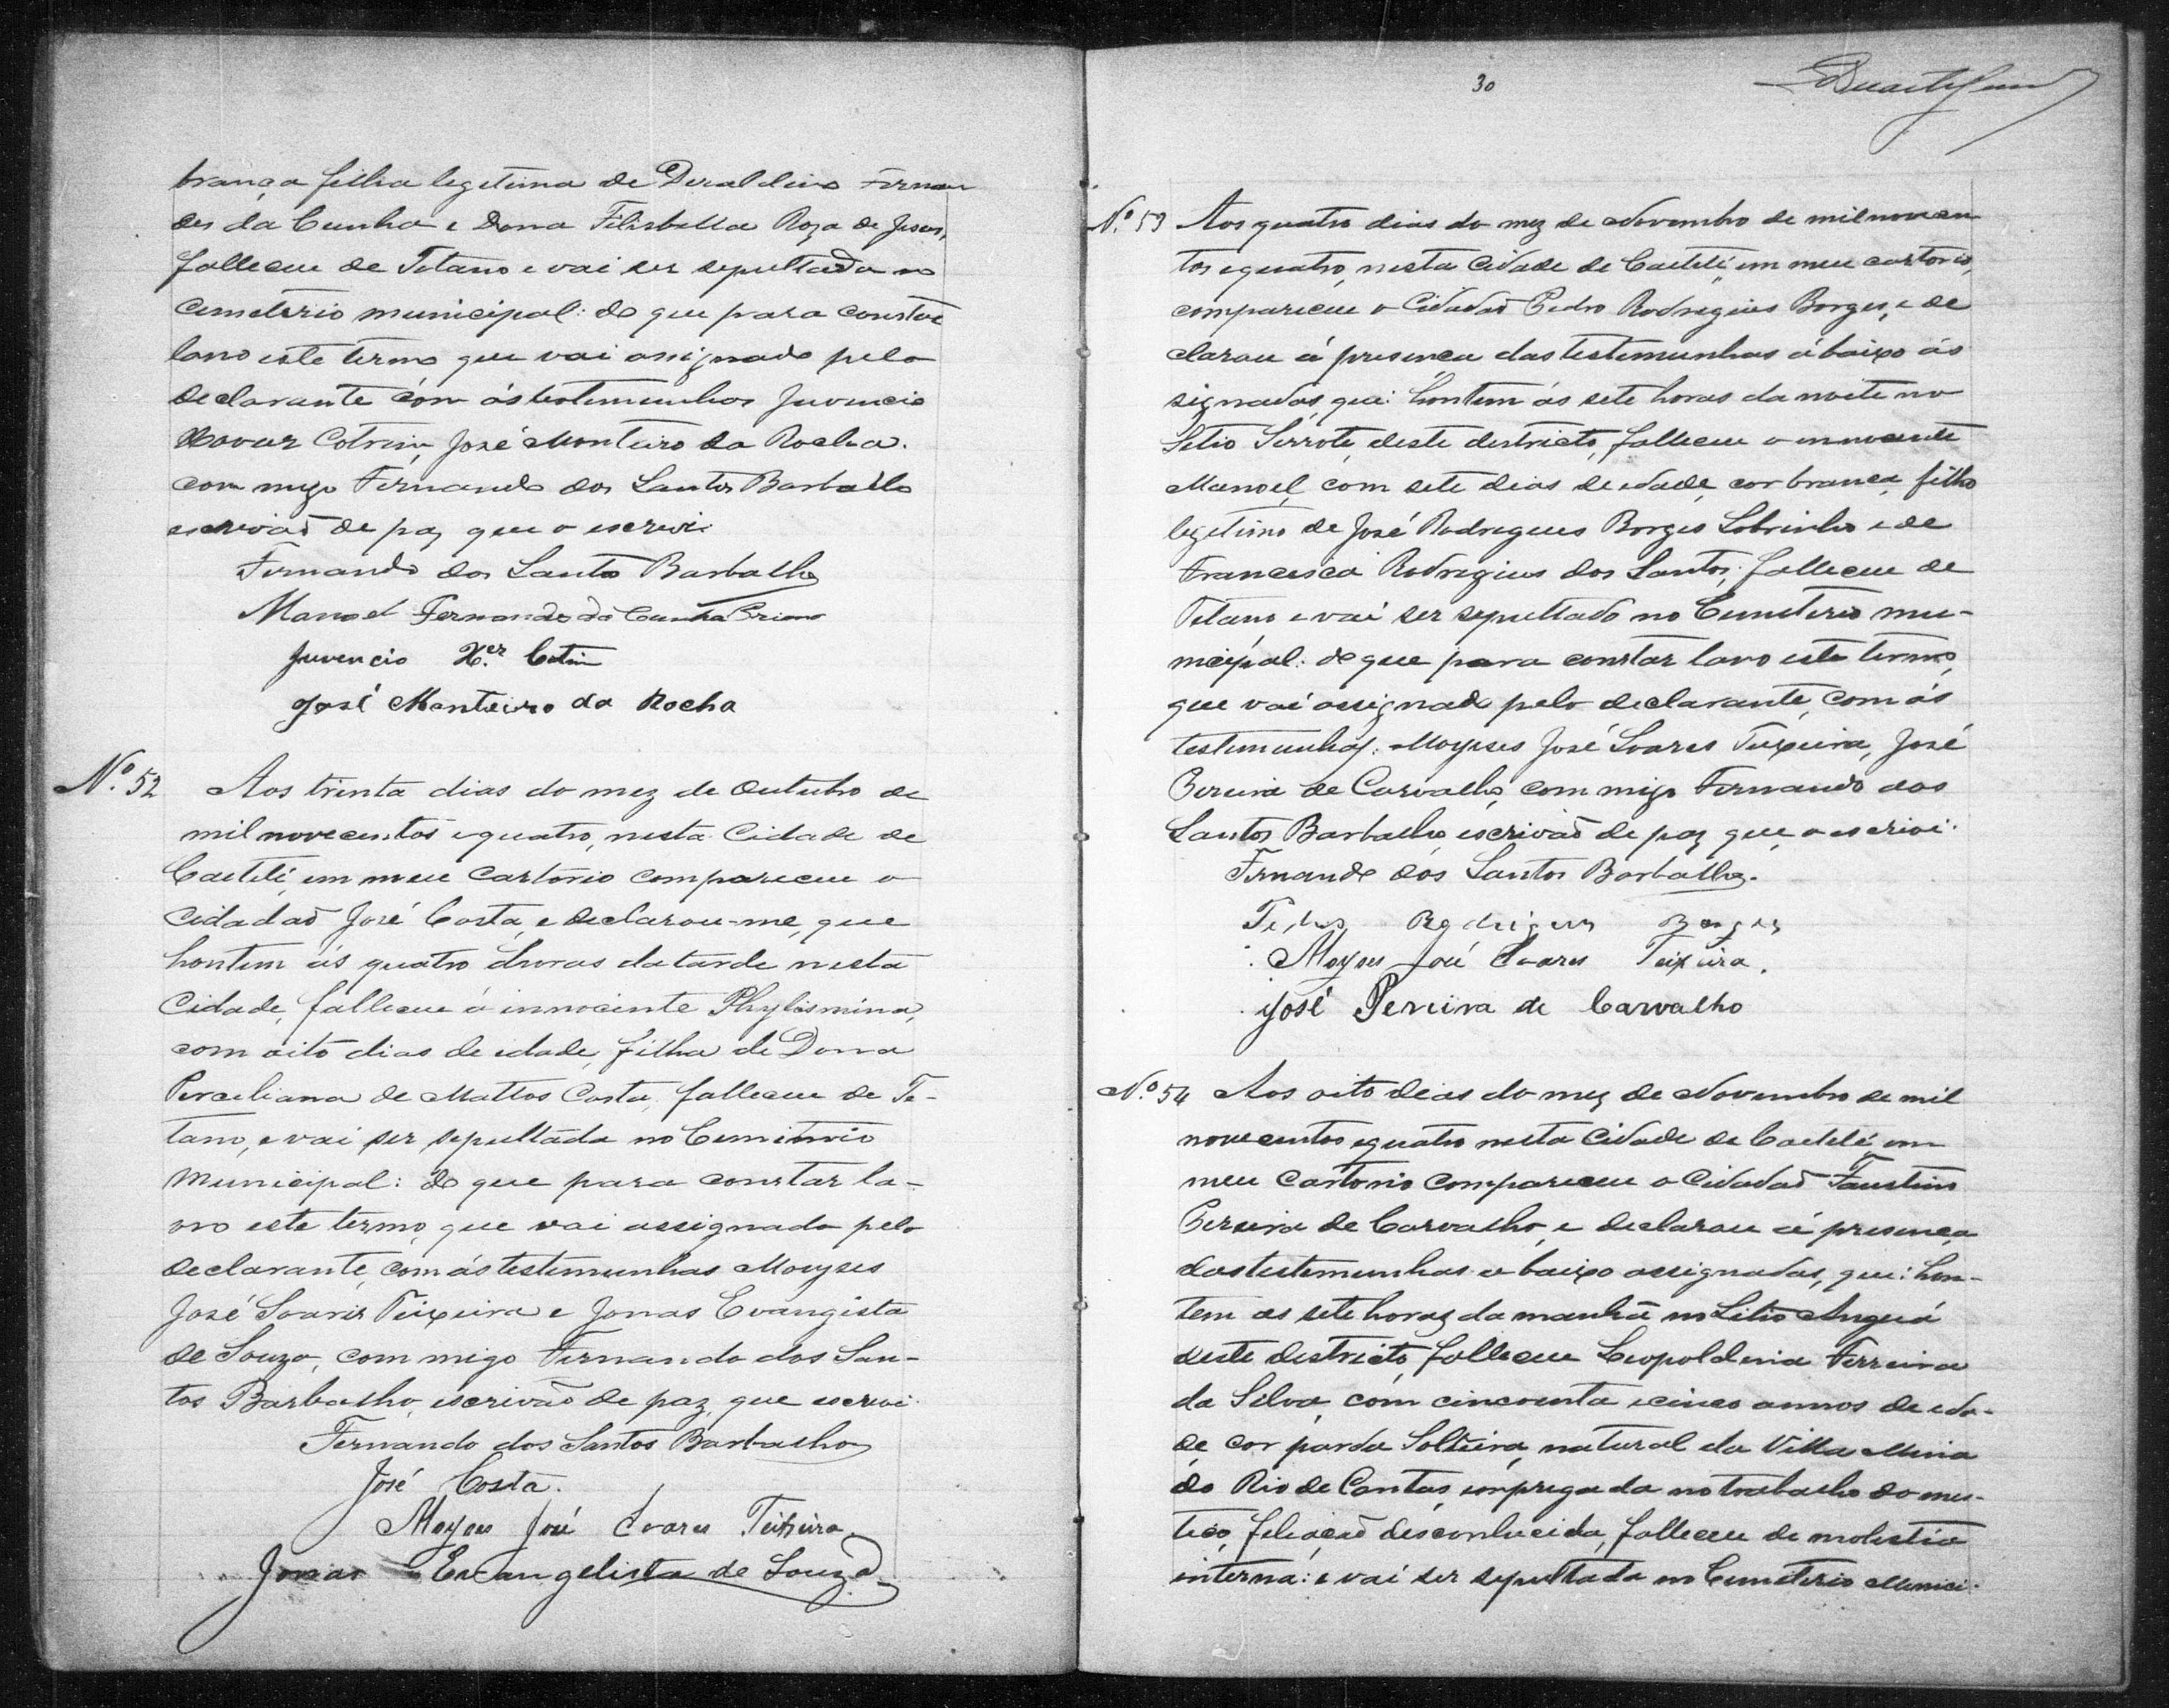 branca filha legitima de Deraldino Fernan
des da Cunha e Dona Filisbella Roza de Jesus,
falleceu de Tetano e vai ser sepultada no
Cemeterio municipal: do que para constar
lavro este termo que vai assignado pelo
declarante com ás testemunhas Juvencio
Xavier Cotrim, José Monteiro da Rocha.
commigo Fernando dos Santos Barbalho
escrivaõ de paz que o escrevi
Fernando dos Santos Barbalho
Manoel Fernandes da Cunha Primo
Juvencio X.er Cotrim
José Monteiro da Rocha
Nº. 52 Aos trinta dias do mez de Outubro de
mil novecentos e quatro, nesta Cidade de
Caetité, em meu Cartorio compareceu o
Cidadaõ José Costa, e declarou-me, que
hontem ás quatro horas da tarde nesta
Cidade, falleceu á innocente Phylismina,
com oito dias de edade, filha de Dona
Perciliana de Mattos Costa, falleceu de Te-
tano, e vai ser sepultada no Cemiterio
Municipal: do que para constar la-
vro este termo, que vai assignado pelo
declarante, com ás testemunhas Moyses
José Soares Teixeira e Jonas Evangista
de Souza, commigo Fernando dos San-
tos Barbalho, escrivaõ de paz, que escrevi.
Fernando dos Santos Barbalho
José Costa.
Moyses José Soares Teixeira.
Jonas Evangelista de Souza
30
Nº. 53 Aos quatro dias do mez de Novembro de mil novecen
tos e quatro, nesta Cidade de Caetité, em meu cartorio,
compareceu o Cidadaõ Pedro Rodrigues Borges, e de
clarou á presenca das testemunhas ábaixo ás
signadas, que: hontem ás sete horas da noite no
Sitio Serrote, deste destricto, falleceu o innocente
Manoel, com sete dias de edade, cor branca, filho
legitimo de José Rodrigues Borges Sobrinho e de
Francisca Rodrigues dos Santos; falleceu de
Tetano e vai ser sepultado no Cemeterio mu-
nicipal: do que para constar lavro este termo,
que vai assignado pelo declarante, com ás
testemunhas: Moyses José Soares Teixeira, José
Pereira de Carvalho, commigo Fernando dos
Santos Barbalho, escrivaõ de paz, que o escrivi.
Fernando dos Santos Barbalho.
Pedro Rodrigues Borges
Moyses José Soares Teixeira.
José Pereira de Carvalho
Nº. 54 Aos oito dias do mez de Novembro de mil
novecentos e quatro nesta Cidade de Caetité, em
meu Cartorio compareceu o Cidadaõ Faustino
Pereira de Carvalho, e declarou á presenca
das testemunhas abaixo assignadas, que: hon-
tem as sete horas da manhã no Sitio Anguá
deste destricto, falleceu Leopoldina Ferreira
da Silva, com cincoenta e cinco annos de eda-
de, cor parda, Solteira, natural da Villa Mina
do Rio de Contas, empregada no trabalho domes-
tico, filiaçaõ desconhecida, falleceu de molestia
interna: e vai ser sepultada no Cemeterio Munici-